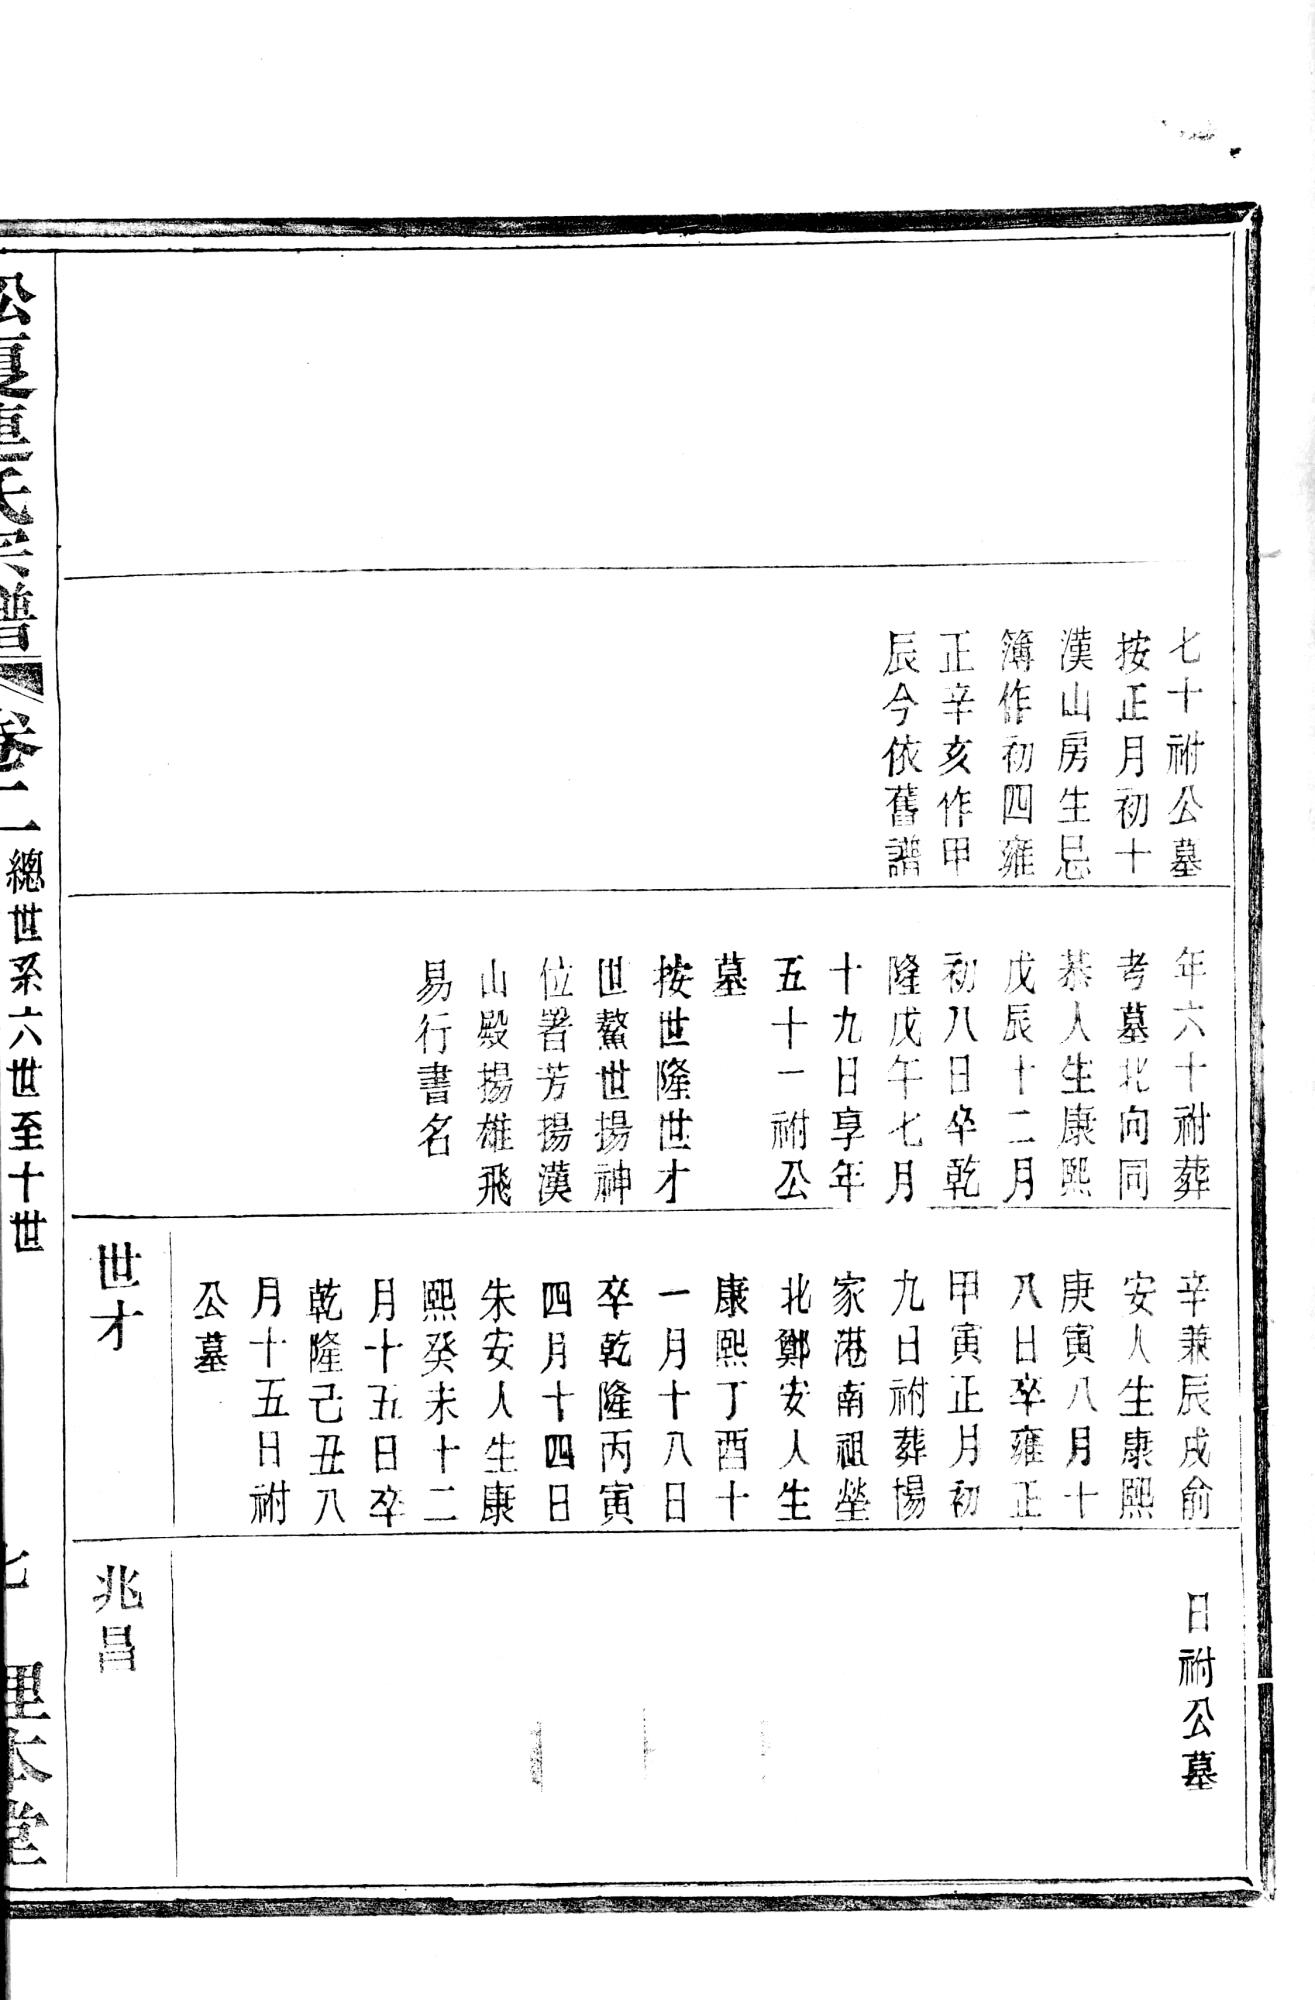 七十祔公墓
按正月初十
漢山房生忌
簿作初四雍
正辛亥作甲
辰今依舊譜
年六十祔葬
考墓北向同
恭人生康熙
戊辰十二月
初八日卒乾
隆戊午七月
十九日享年
五十一祔公
墓
按世隆世才
世鰲世揚神
位署芳揚漢
山殿揚雄飛
易行書名
辛兼辰戌俞
安人生康熙
庚寅八月十
八日卒雍正
甲寅正月初
九日祔葬楊
家港南祖塋
北鄭安人生
康熙丁酉十
一月十八日
卒乾隆丙寅
四月十四日
朱安人生康
熙癸未十二
月十五日卒
乾隆己丑八
月十五日祔
公墓
世才
日祔公墓
兆昌
松夏連氏宗譜 卷二 總世系六世至十世 七 理本堂